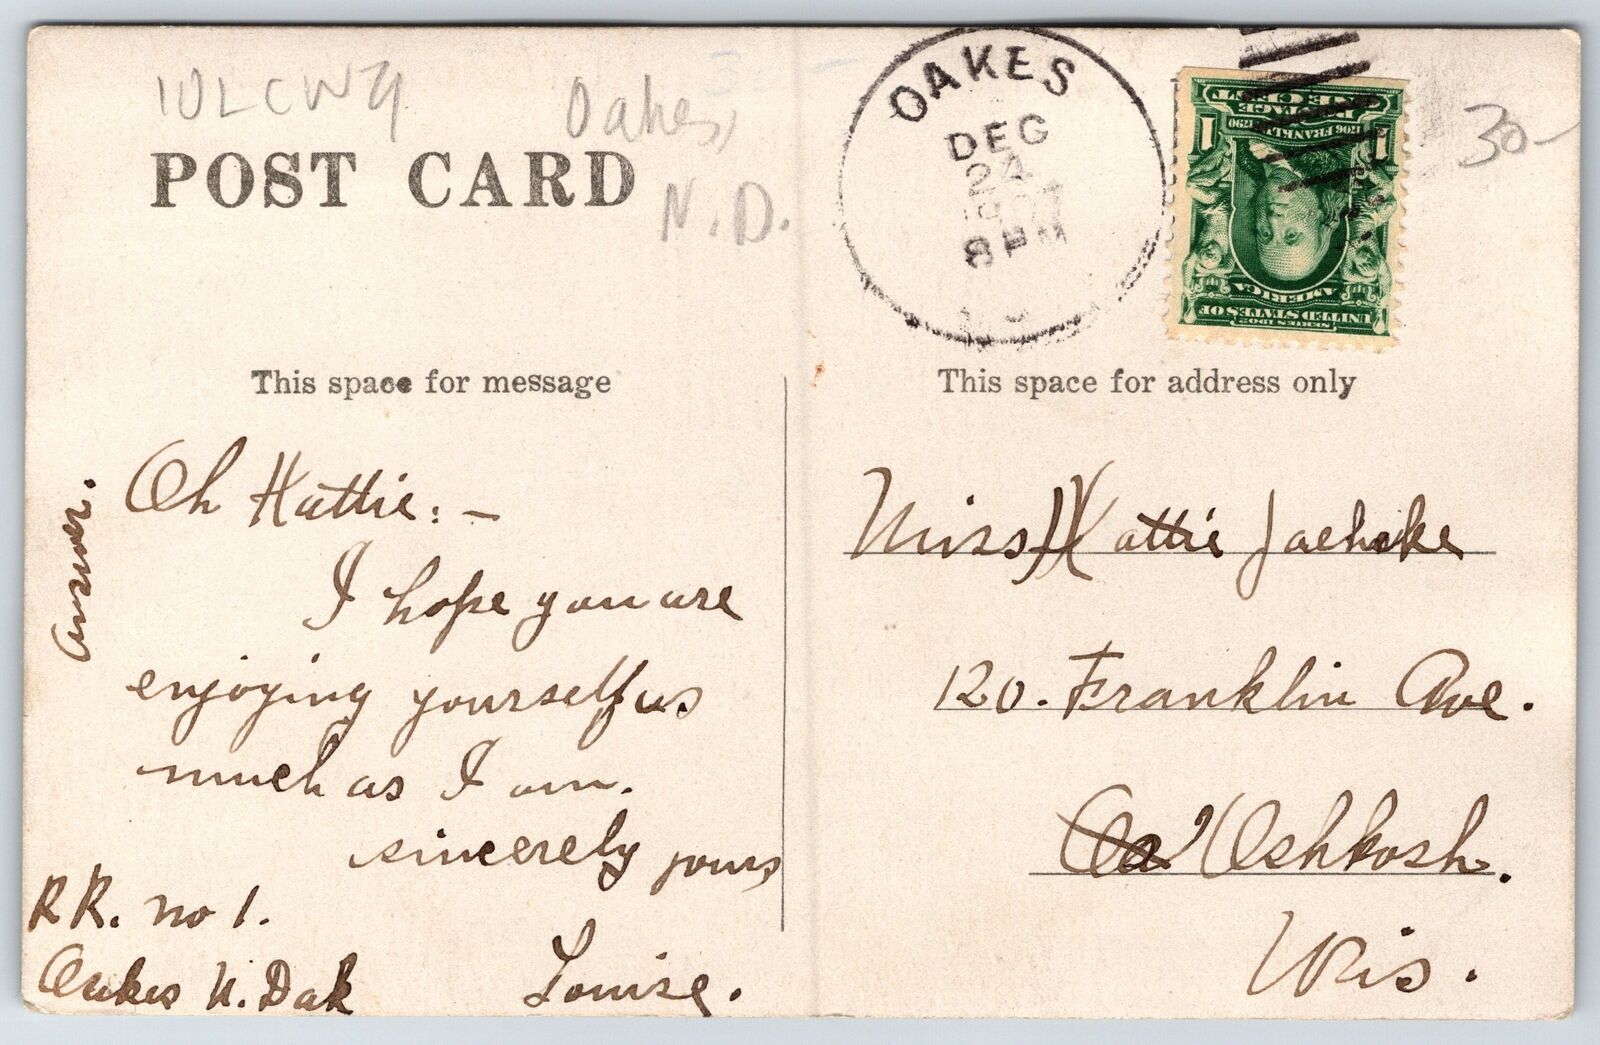 10LCW79
Oakes,
N.D.
POST CARD
OAKES
DEC
24
8 PM
30-
SERIES 1902
UNITED STATES OF
AMERICA
1706 FRANKLIN 1790
1 1
POSTAGE
ONE CENT
This space for message
This space for address only
Answer.
Oh Hattie: -
I hope you are
enjoying yourself as
much as I am.
sincerely yours
Louise.
RR. no 1.
Oakes N. Dak
Miss Hattie Jaehnke
120. Franklin Ave.
Oshkosh.
Wis.